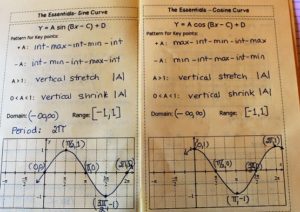 The Essentials- Sine Curve
Y = A sin (Bx – C) + D
Pattern for Key points:
+A: int-max-int-min-int
-A: int-min-int-max-int
A>1: vertical stretch |A|
0<A<1: vertical shrink |A|
Domain: (-∞,∞) Range: [-1,1]
Period: 2π
(0,0)
(π/2,1)
(π,0)
(3π/2,-1)
The Essentials – Cosine Curve
Y = A cos (Bx – C) + D
Pattern for Key points:
+A: max-int-min-int-max
-A: min-int-max-int-min
A>1: vertical stretch |A|
0<A<1: vertical shrink |A|
Domain: (-∞,∞) Range: [-1,1]
(0,1)
(π/2,0)
(π,-1)